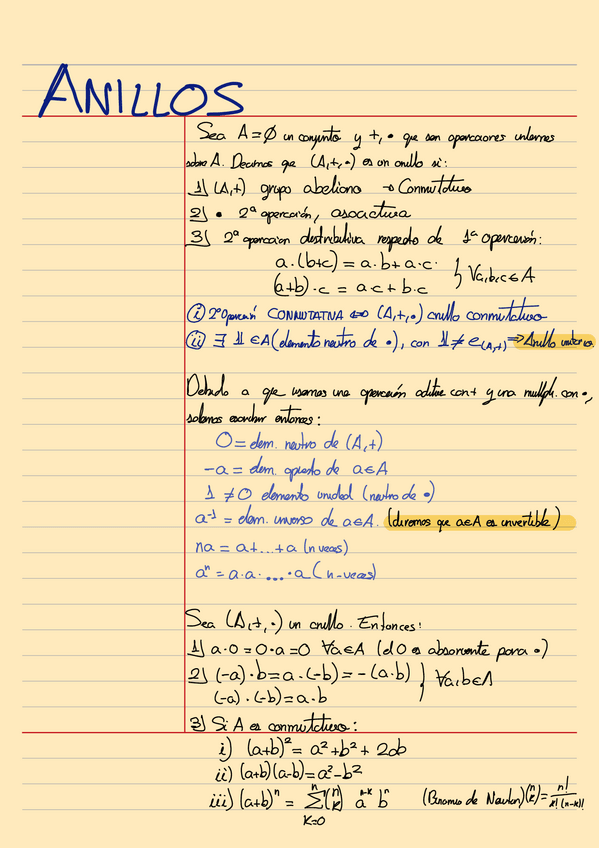 ANILLOS
Sea A=Ø un conjunto y +, • que son operaciones internas
sobre A. Decimos que (A,+,•) es un anillo si:
1) (A,+) grupo abeliano → Conmutativo
2) • 2ª operación, asociativa
3) 2ª operacion distributiva respecto de 1ª operación:
a·(b+c) = a·b+a·c·
(a+b)·c = a·c + b·c } ∀a,b,c∈A
i) 2ª Operación CONMUTATIVA ⇔ (A,+,•) anillo conmutativo
ii) ∃ 1∈A (elemento neutro de •), con 1≠e(A,+) ⇒ Anillo unitario.
Debido a que usamos una operación aditiva con + y una multipl. con •,
solemos escribir entonces:
0 = elem. neutro de (A,+)
-a = elem. opuesto de a∈A
1 ≠ 0 elemento unidad (neutro de •)
a⁻¹ = elem. inverso de a∈A. (diremos que a∈A es invertible)
na = a+...+a (n veces)
aⁿ = a·a· ... ·a (n-veces)
Sea (A,+,·) un anillo. Entonces:
1) a·0 = 0·a = 0 ∀a∈A (el 0 es absorvente para •)
2) (-a)·b = a·(-b) = -(a·b)
(-a)·(-b) = a·b } ∀a,b∈A
3) Si A es conmutativo:
i) (a+b)² = a²+b²+2ab
ii) (a+b)(a-b) = a²-b²
iii) (a+b)ⁿ = ∑ₖ₌₀ⁿ (n k) aⁿ⁻ᵏ bⁿ (Binomio de Newton) (n k) = n!/k!(n-k)!